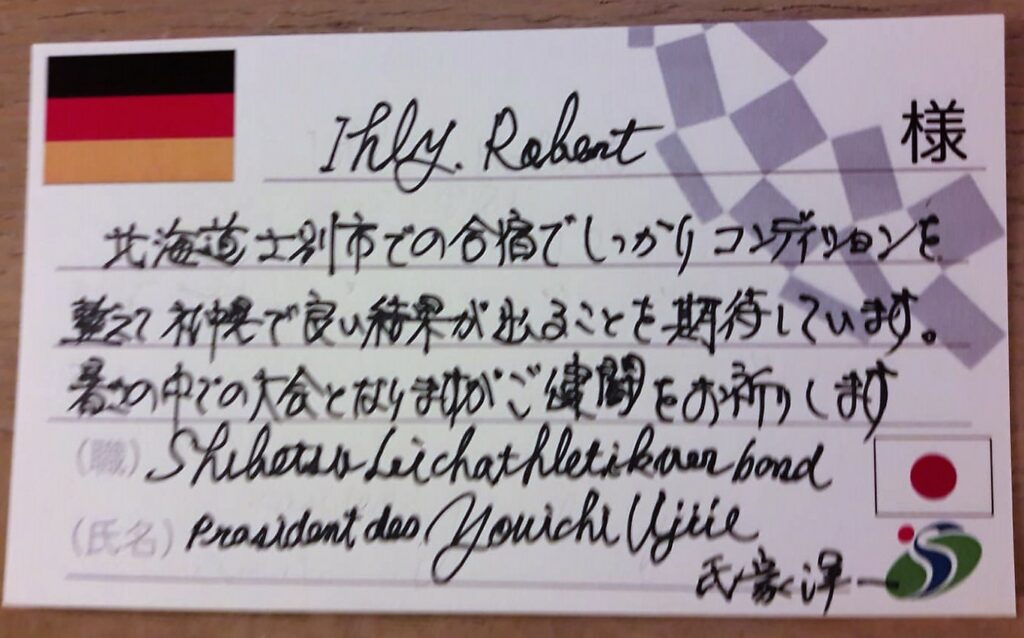 Ihly. Robert 様
北海道士別市での合宿でしっかりコンディションを
整えて札幌で良い結果が出ることを期待しています。
暑さの中での大会となりますがご健闘をお祈りします
(職) Shibetsu Leichathletikverbond
(氏名) President des Youichi Ujiie
氏家洋一